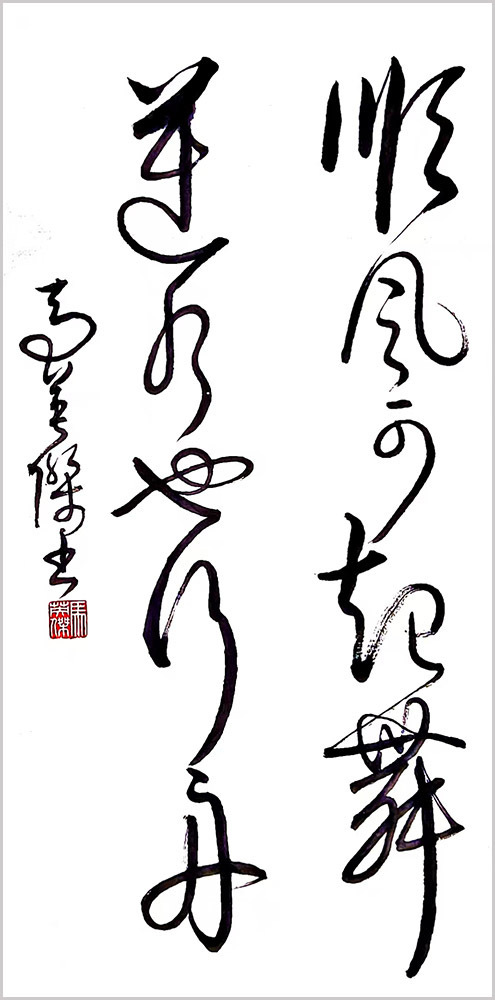 順風可起舞
逆水也行舟
馬英傑書
馬英傑